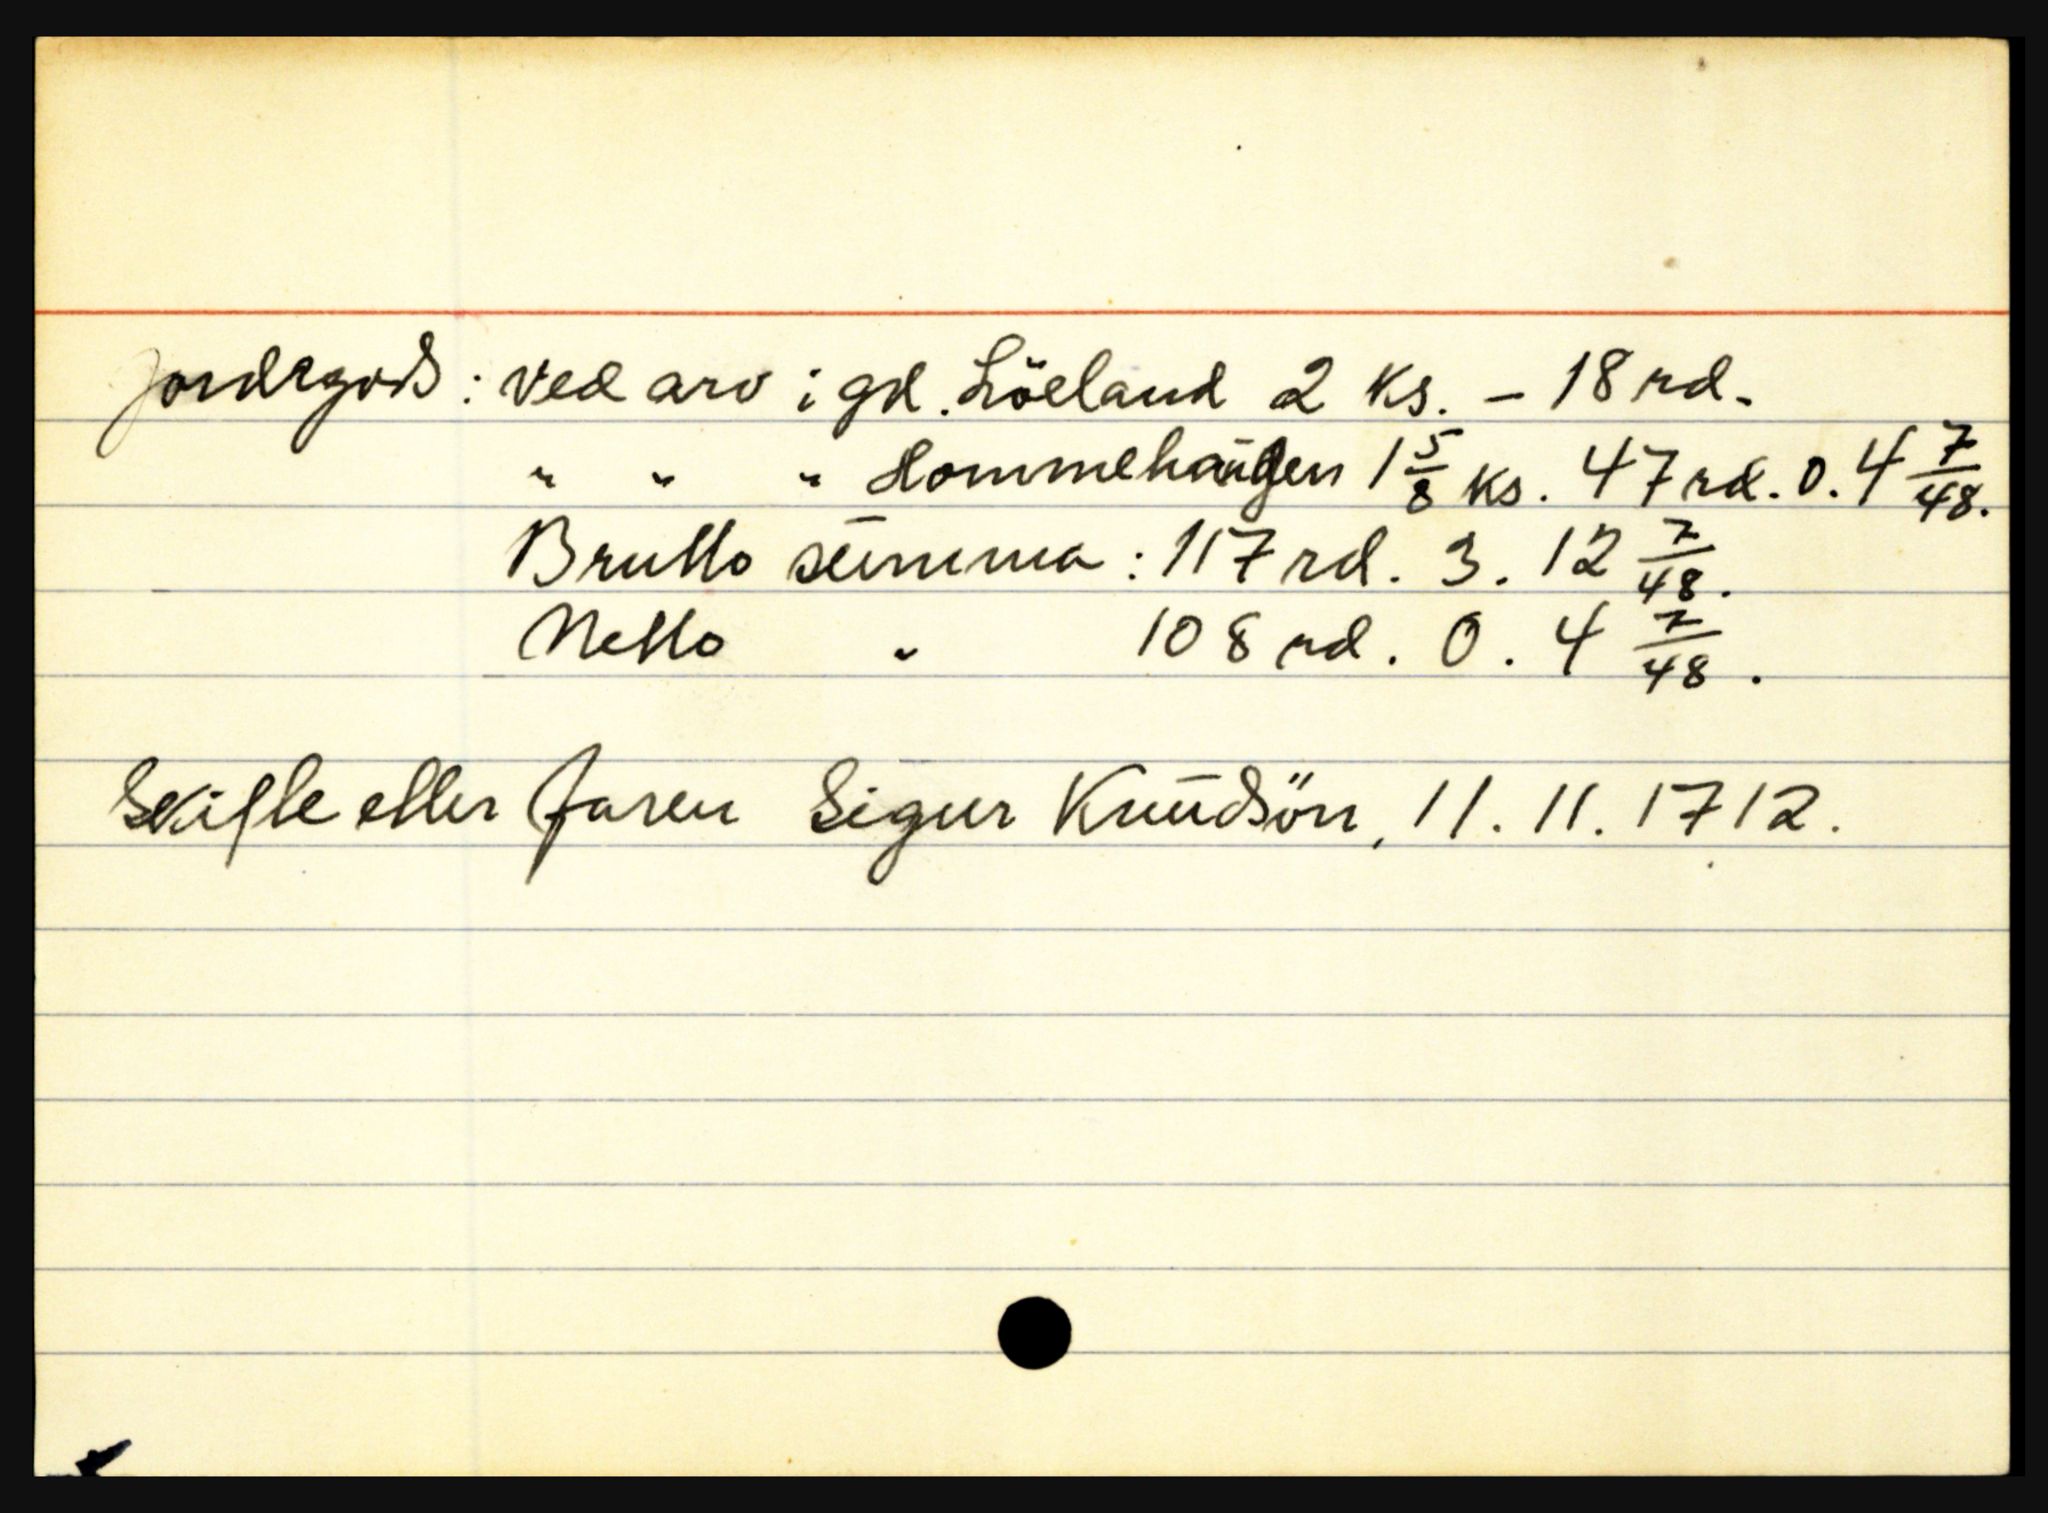 Jordegods: ved arv i gd. Löeland 2 ks. - 18 rd.
" " " Hommehaugen 1 5/8 ks. 47 rd. 0. 4 7/48.
Brutto summa: 117 rd. 3. 12 7/48.
Netto " 108 rd. 0. 4 7/48.
Skifte etter faren Sigur Knudsön, 11. 11. 1712.